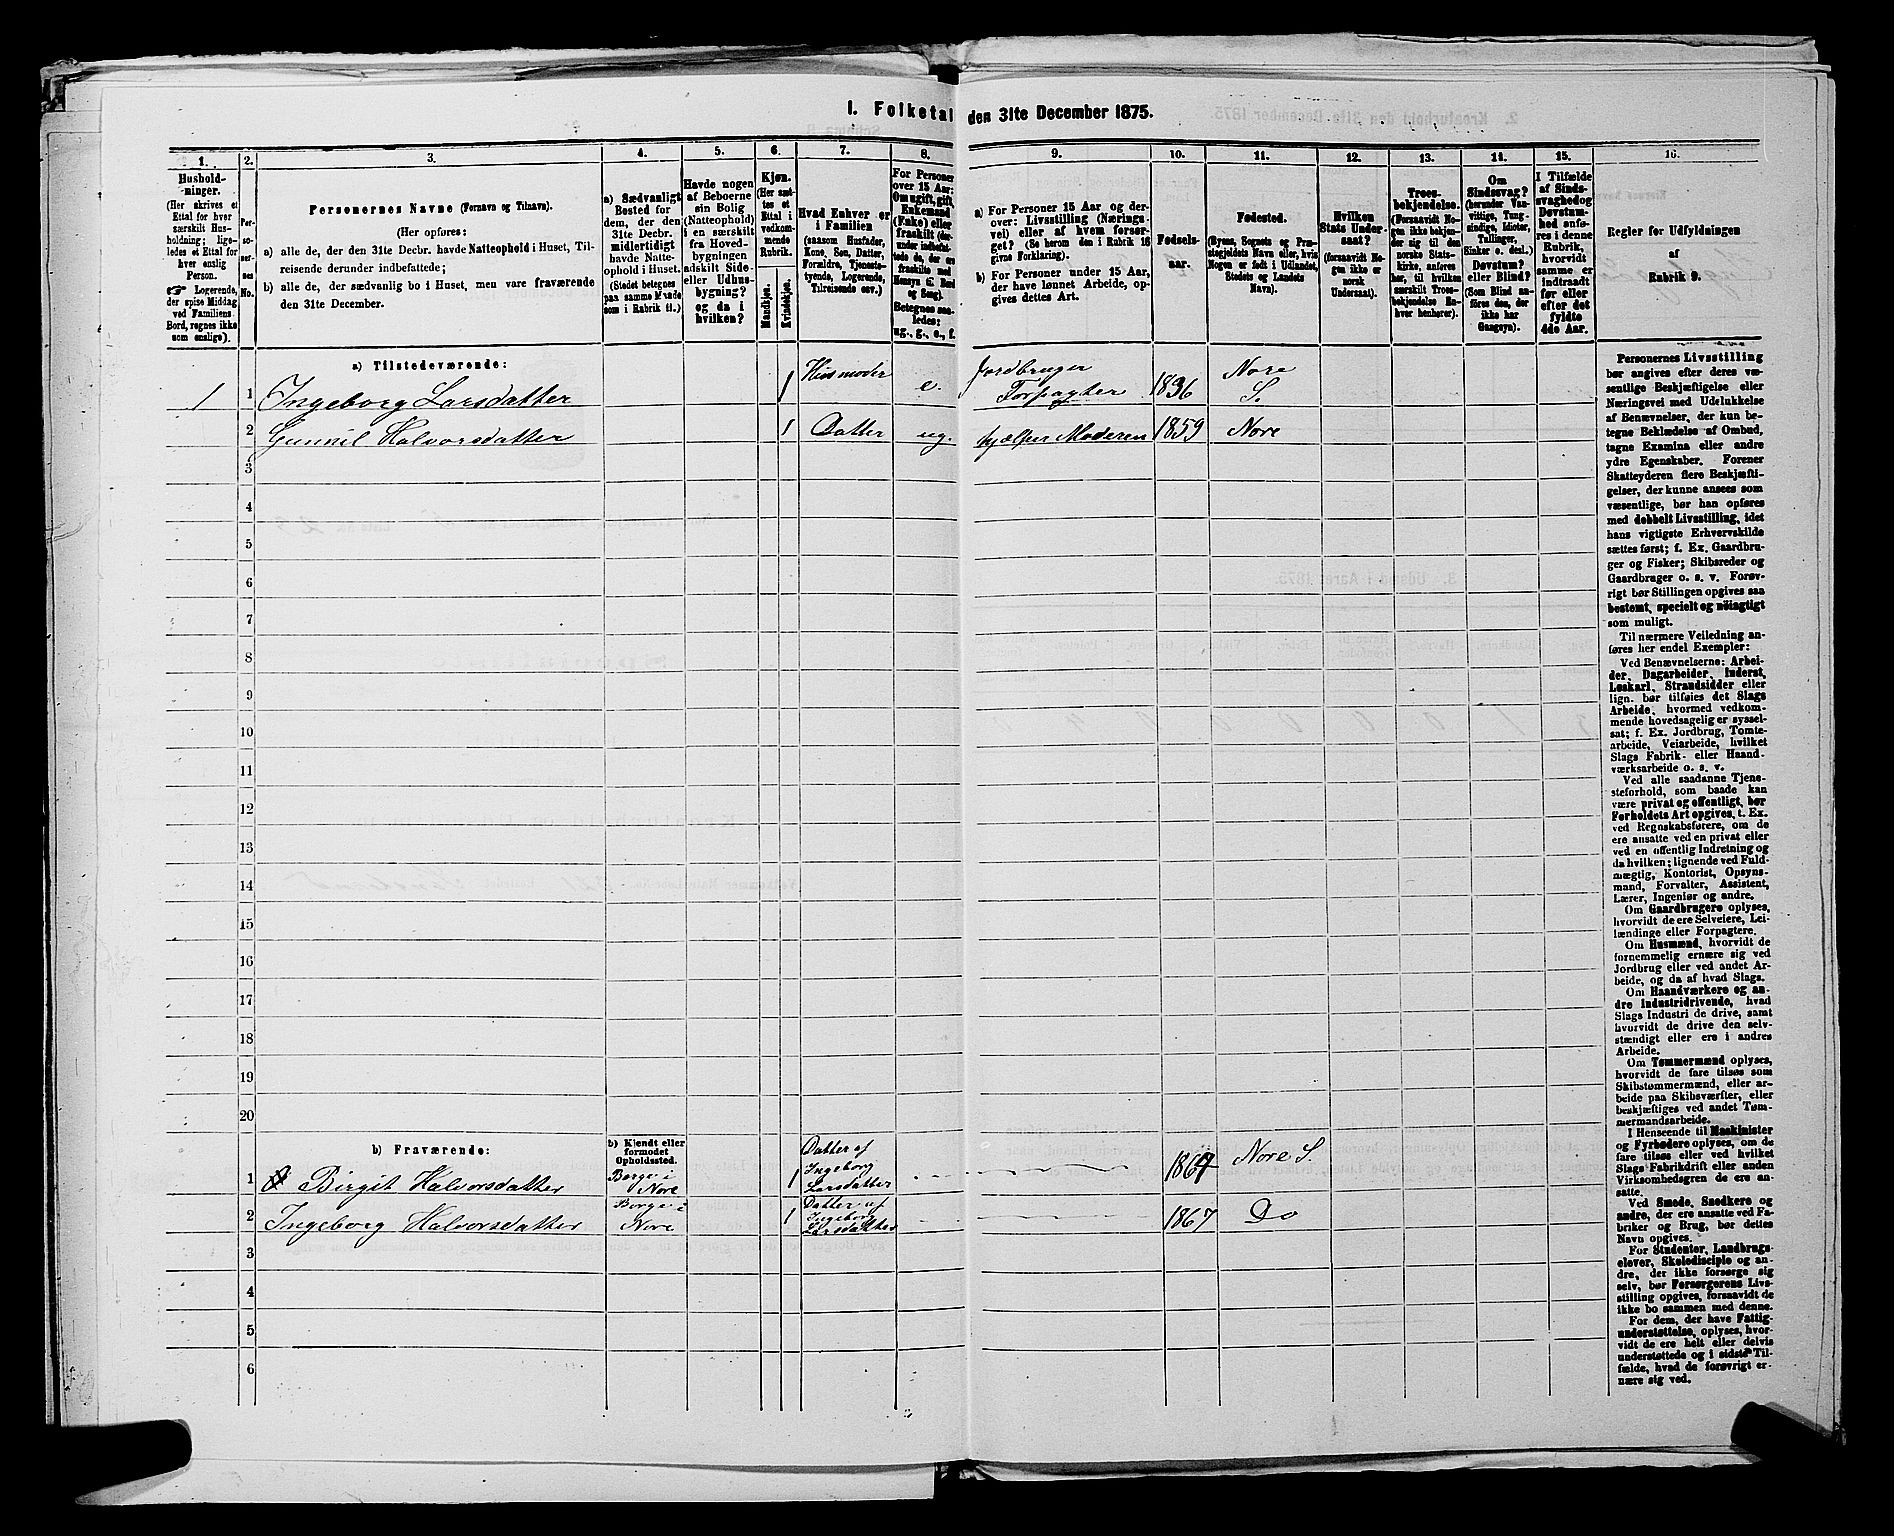 1. Folketal den 31te December 1875.
1.
2.
3.
4.
5.
6.
7.
8.
9.
10.
11.
12.
13.
14.
15.
16.
Hushold-
ninger.
(Her skrives et
Ettal for hver
særskilt Hus-
holdning; lige-
ledes et Ettal for
hver enslig
Person.
☞ Logerende,
der spise Middag
ved Familiens
Bord, regnes ikke
som enslige).
Per-
so-
ner-
nes
No.
Personernes Navne (Fornavn og Tilnavn).
(Her opføres:
a) alle de, der den 31te Decbr. havde Natteophold i Huset, Til-
reisende derunder indbefattede;
b) alle de, der sædvanlig bo i Huset, men vare fraværende
den 31te December.
a) Sædvanligt
Bosted for
dem, der den
31te Decbr.
midlertidigt
havde Natte-
ophold i Huset.
(Stedet betegnes
paa samme Maade
som i Rubrik 11.)
Havde nogen
af Beboerne
sin Bolig
(Natteophold)
i en særskilt
fra Hoved-
bygningen
adskilt Side-
eller Udhus-
bygning?
og da i
hvilken?
Kjøn.
(Her sæt-
tes et
Ettal i
vedkom-
mende
Rubrik.
Mandkjøn.
Kvindekjøn.
Hvad Enhver er
i Familien
(saasom Husfader,
Kone, Søn, Datter,
Forældre, Tjeneste-
tyende, Logerende,
Tilreisende osv.)
For Personer
over 15 Aar:
Om ugift, gift,
Enkemand
(Enke) eller
fraskilt
Betegnes saa-
ledes:
ug., g., e., f.
a) For Personer 15 Aar og der-
over: Livsstilling (Nærings-
vei) eller af hvem forsør-
get? (Se herom den i Rubrik 16
givne Forklaring).
b) For Personer under 15 Aar,
der have lønnet Arbeide, op-
gives dettes Art.
Fødsels-
aar.
Fødested.
(Byens, Sognets og Præ-
stegjeldets Navn eller, hvis
Nogen er født i Udlandet,
Stedets og Landets
Navn).
Hvilken
Stats Under-
saat?
(forsaavidt No-
gen ikke er
norsk
Undersaat).
Troes-
bekjendelse.
(Forsaavidt No-
gen ikke bekjen-
der sig til den
norske Stats-
kirke, anføres
her, til hvilken
særskilt Troes-
bekjendelse En-
hver henhører).
Om
Sindssvag?
(herunder Van-
vittige, Tung-
sindige, Idioter,
Tullinger,
Sinker o. desl.).
Døvstum?
eller Blind?
(Som Blind an-
føres den, der
ikke har
Gangsyn).
I Tilfælde
af Sinds-
svaghed og
Døvstum-
hed anfø-
res i denne
Rubrik,
hvorvidt
samme er
indtraadt
før eller
efter det
fyldte
4de Aar.
Regler for Udfyldningen
af
Rubrik 9.
a) Tilstedeværende:
1 1 Ingeborg Larsdatter 1 Husmoder e. Jordbruger Forpagter 1836 Nore S.
2 Gunnil Halvorsdatter 1 Datter ug. hjælper Moderen 1859 Nore
3
4
5
6
7
8
9
10
11
12
13
14
15
16
17
18
19
20
b) Fraværende:
b) Kjendt eller
formodet
Opholdssted.
1 Birgit Halvorsdatter Borge i Nore 1 Datter af Ingeborg Larsdatter 1864 Nore S.
2 Ingeborg Halvorsdatter Borge i Nore 1 Datter af Ingeborg Larsdatter 1867 Do
3
4
5
6
Personernes Livsstilling
bør angives efter deres væ-
sentlige Beskjæftigelse eller
Næringsvei med Udelukkelse
af Benævnelser, der kun be-
tegne Beklædelse af Ombud,
tagne Examina eller andre
ydre Egenskaber. Forener
Skatteyderen flere Beskjæfti-
gelser, der kunne ansees som
væsentlige, bør han opføres
med dobbelt Livsstilling, idet
hans vigtigste Erhvervskilde
sættes først; f. Ex. Gaardbru-
ger og Fisker; Skibsreder og
Gaardbruger o. s. v. Forøv-
rigt bør Stillingen opgives saa
bestemt, specielt og nøiagtigt
som muligt.
Til nærmere Veiledning an-
føres her endel Exempler:
Ved Benævnelserne: Arbei-
der, Dagarbeider, Inderst,
Løskarl, Strandsidder eller
lign. bør tilføies det Slags
Arbeide, hvormed vedkom-
mende hovedsagelig er syssel-
sat; f. Ex. Jordbrug, Tomte-
arbeide, Veiarbeide, hvilket
Slags Fabrik- eller Haand-
værksarbeide o. s. v.
Ved alle saadanne Tjene-
steforhold, som baade kan
være privat og offentligt, bør
Forholdets Art opgives, t. Ex.
ved Regnskabsførere, om de
ere ansatte ved en privat eller
ved en offentlig Indretning og
da hvilken; lignende ved Fuld-
mægtig, Kontorist, Opsyns-
mand, Forvalter, Assistent,
Lærer, Ingeniør og andre.
Om Gaardbrugere oplyses,
hvorvidt de ere Selveiere, Lei-
lændinge eller Forpagtere.
Om Husmænd, hvorvidt de
fornemmelig ernære sig ved
Jordbrug eller ved andet Ar-
beide, og da af hvad Slags.
Om Haandværkere og an-
dre Industridrivende, hvad
Slags Industri de drive, samt
hvorvidt de drive den selv-
stændigt eller ere i andres
Arbeide.
Om Tømmermænd oplyses,
hvorvidt de fare tilsøs som
Skibstømmermænd, eller ar-
beide paa Skibsværfter, eller
beskjæftiges ved andet Tøm-
mermandsarbeide.
I Henseende til Maskinister
og Fyrbødere oplyses, om de
fare tilsøs eller ved hvilket
Slags Fabrikdrift eller anden
Virksomhedsgren de ere an-
satte.
Ved Smede, Snedkere og
andre, der ere ansatte ved Fa-
briker og Brug, bør dettes
Navn opgives.
For Studenter, Landbrugs-
elever, Skoledisciple og an-
dre, der ikke forsørge sig
selv, bør Forsørgerens Livs-
stilling opgives, forsaavidt de
ikke bo sammen med denne.
For dem, der have Fattig-
understøttelse, oplyses, hvor-
vidt de ere helt eller delvis
understøttede og i sidste Til-
fælde, hvad de forøvrigt er-
nære sig ved.